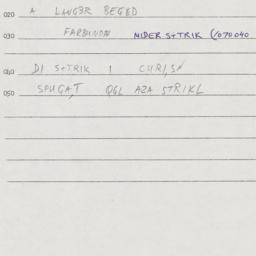 020 A LANGER BEGED
030 FARBUNDN NIDER STRIK (/070040
040 DI STRIK I
050 SPUGAT OGL AZA STRIKL